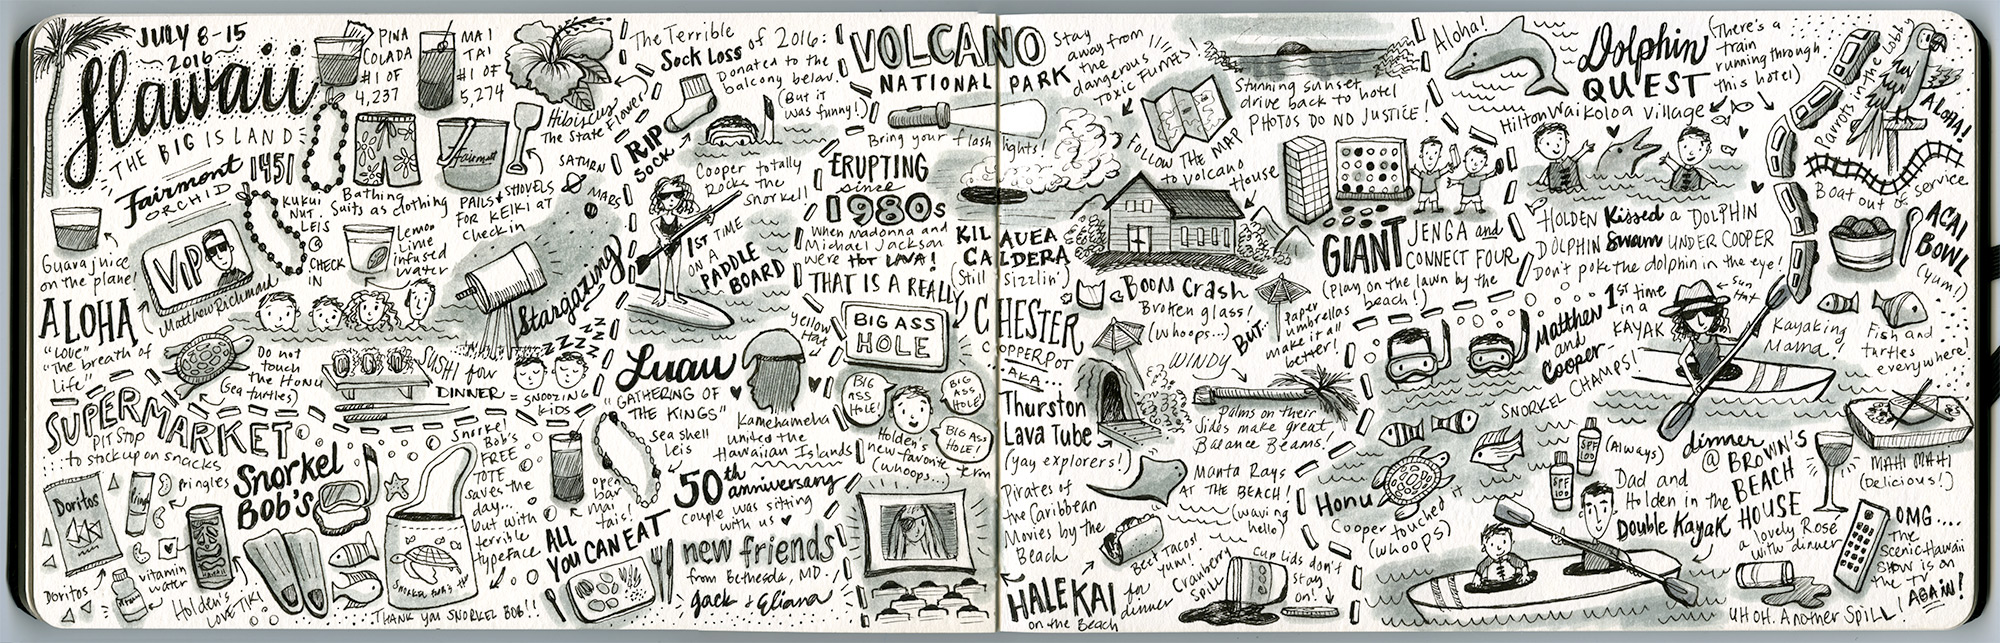 JULY 8-15
2016
Hawaii
THE BIG ISLAND
Fairmont
ORCHID
1451
PINA
COLADA
#1 OF
4,237
MAI
TAI
#1 OF
5,274
Hibiscus
The State Flower
Bathing
Suits as clothing
Fairmont
PAILS + SHOVELS
FOR KEIKI AT
Check in
SATURN
MARS
KUKUI
NUT
LEIS
@
CHECK
IN
Lemon
Lime
infused
Water
Guava juice
on the plane!
VIP
(Matthew Richman)
ALOHA
"LOVE"
"The breath of
life"
Do not
touch
the HONU
(Sea turtles)
Stargazing
SUSHI for
DINNER
ZZZZZZ
= SNOOZING
KIDS
SUPERMARKET
PIT STOP
...to stock up on snacks
Doritos
Pringles
vitamin
water
Doritos
Holden's
LOVE TIKI
Snorkel
BOB'S
Snorkel
Bob's
FREE
TOTE
saves the
day...
but with
terrible
typeface
SNORKEL BOB'S
THANK YOU SNORKEL BOB!!
The Terrible
Sock Loss of 2016:
Donated to the
balcony below.
(But it
was funny!)
RIP
SOCK
Cooper totally
Rocks the
Snorkel!
1ST TIME
ON A
PADDLE
BOARD
Luau
"GATHERING OF
THE KINGS"
yellow
Hat
Kamehameha
united the
Hawaiian Islands
Sea shell
Leis
open
bar
mai
tais!
ALL
YOU CAN EAT
50th
anniversary
couple was sitting
with us
new friends
from Bethesda, MD.
Jack + Eliana
VOLCANO
NATIONAL PARK
Stay
away from
the
dangerous
TOXIC FUMES!
Bring your flash lights!
ERUPTING
since
1980s
When Madonna and
Michael Jackson
were HOT LAVA!
KILAUEA
CALDERA
(Still Sizzlin')
THAT IS A REALLY
BIG ASS
HOLE
BIG
ASS
HOLE!
BIG
ASS
HOLE!
BIG ASS
HOLE!
Holden's
new favorite
term
(whoops...)
CHESTER
COPPERPOT
...AKA...
Thurston
Lava Tube
(yay explorers!)
Pirates of
the Caribbean
Movies by the
Beach
HALEKAI
on the Beach
for
dinner
Beet Tacos!
yum!
Cranberry
Spill
Cup lids don't
stay
on!
FOLLOW THE MAP
to Volcano
House
Stunning sunset
drive back to hotel
PHOTOS DO NO JUSTICE!
BOOM Crash
Broken glass!
(whoops...)
BUT...
Paper
umbrellas
make it all
better!
WINDY
Palms on their
Sides make great
Balance Beams!
Manta Rays
AT THE BEACH!
(waving
hello)
GIANT
JENGA and
CONNECT FOUR
(Play on the lawn by the
beach!)
Aloha!
Dolphin
QUEST
(There's a
train
running through
this hotel)
Hilton Waikoloa Village
HOLDEN Kissed a DOLPHIN
DOLPHIN Swam UNDER COOPER
Don't poke the dolphin in the eye!
Parrots in the Lobby
ALOHA!
Boat out of service
ACAI
BOWL
(yum!)
Matthew
and
Cooper-
SNORKEL CHAMPS!
1st time
in a
KAYAK
Sun
Hat
Kayaking
Mama!
Fish and
turtles
everywhere!
Honu
Cooper touched
IT
(WHOOPS)
SPF
100
SPF
100
(Always)
Dad and
Holden in the
Double Kayak
dinner
@ BROWN'S
BEACH
HOUSE
a lovely Rosé
with dinner
MAHI MAHI
(Delicious!)
OMG....
The
Scenic Hawaii
show is on
the TV
AGAIN!
UH OH. Another SPILL!